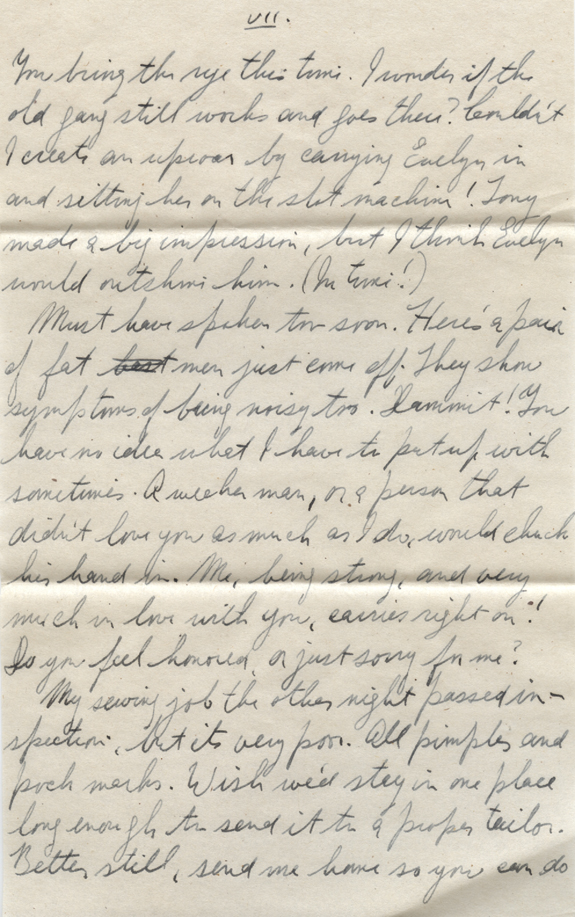 VII.
You bring the rye this time. I wonder if the
old gang still works and goes there? Couldn't
I create an uproar by carrying Evelyn in
and sitting her on the slot machine! Tony
made a big impression, but I think Evelyn
would outshine him. (In time!)
Must have spoken too soon. Here's a pair
of fat men just come off. They show
symptoms of being noisy too. Dammit! You
have no idea what I have to put up with
sometimes. A weaker man, or a person that
didn't love you as much as I do, would chuck
his hand in. Me, being strong, and very
much in love with you, carries right on!
Do you feel honored, or just sorry for me?
My sewing job the other night passed in-
spection, but its very poor. All pimples and
pock marks. Wish we'd stay in one place
long enough to send it to a proper tailor.
Better still, send me home so you can do